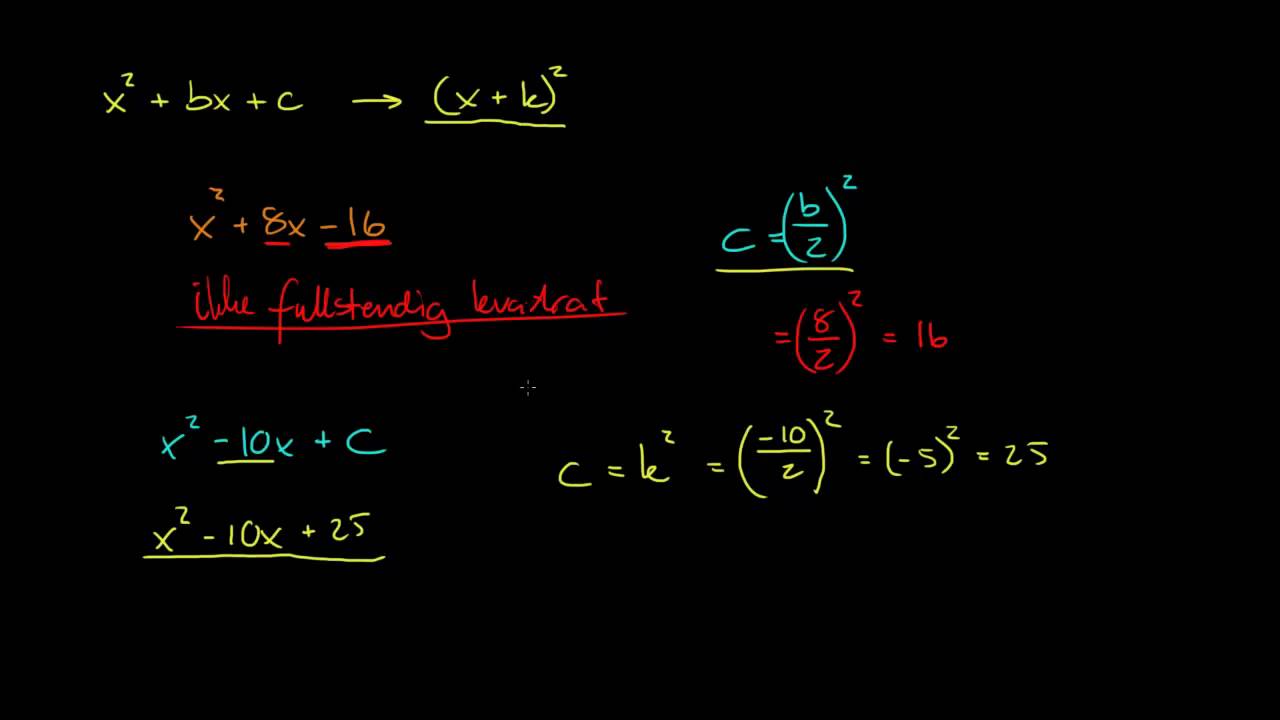 x² + bx + c → (x + k)²
x² + 8x - 16
ikke fullstendig kvadrat
c = (b/2)²
= (8/2)² = 16
x² - 10x + C
c = k² = (-10/2)² = (-5)² = 25
x² - 10x + 25